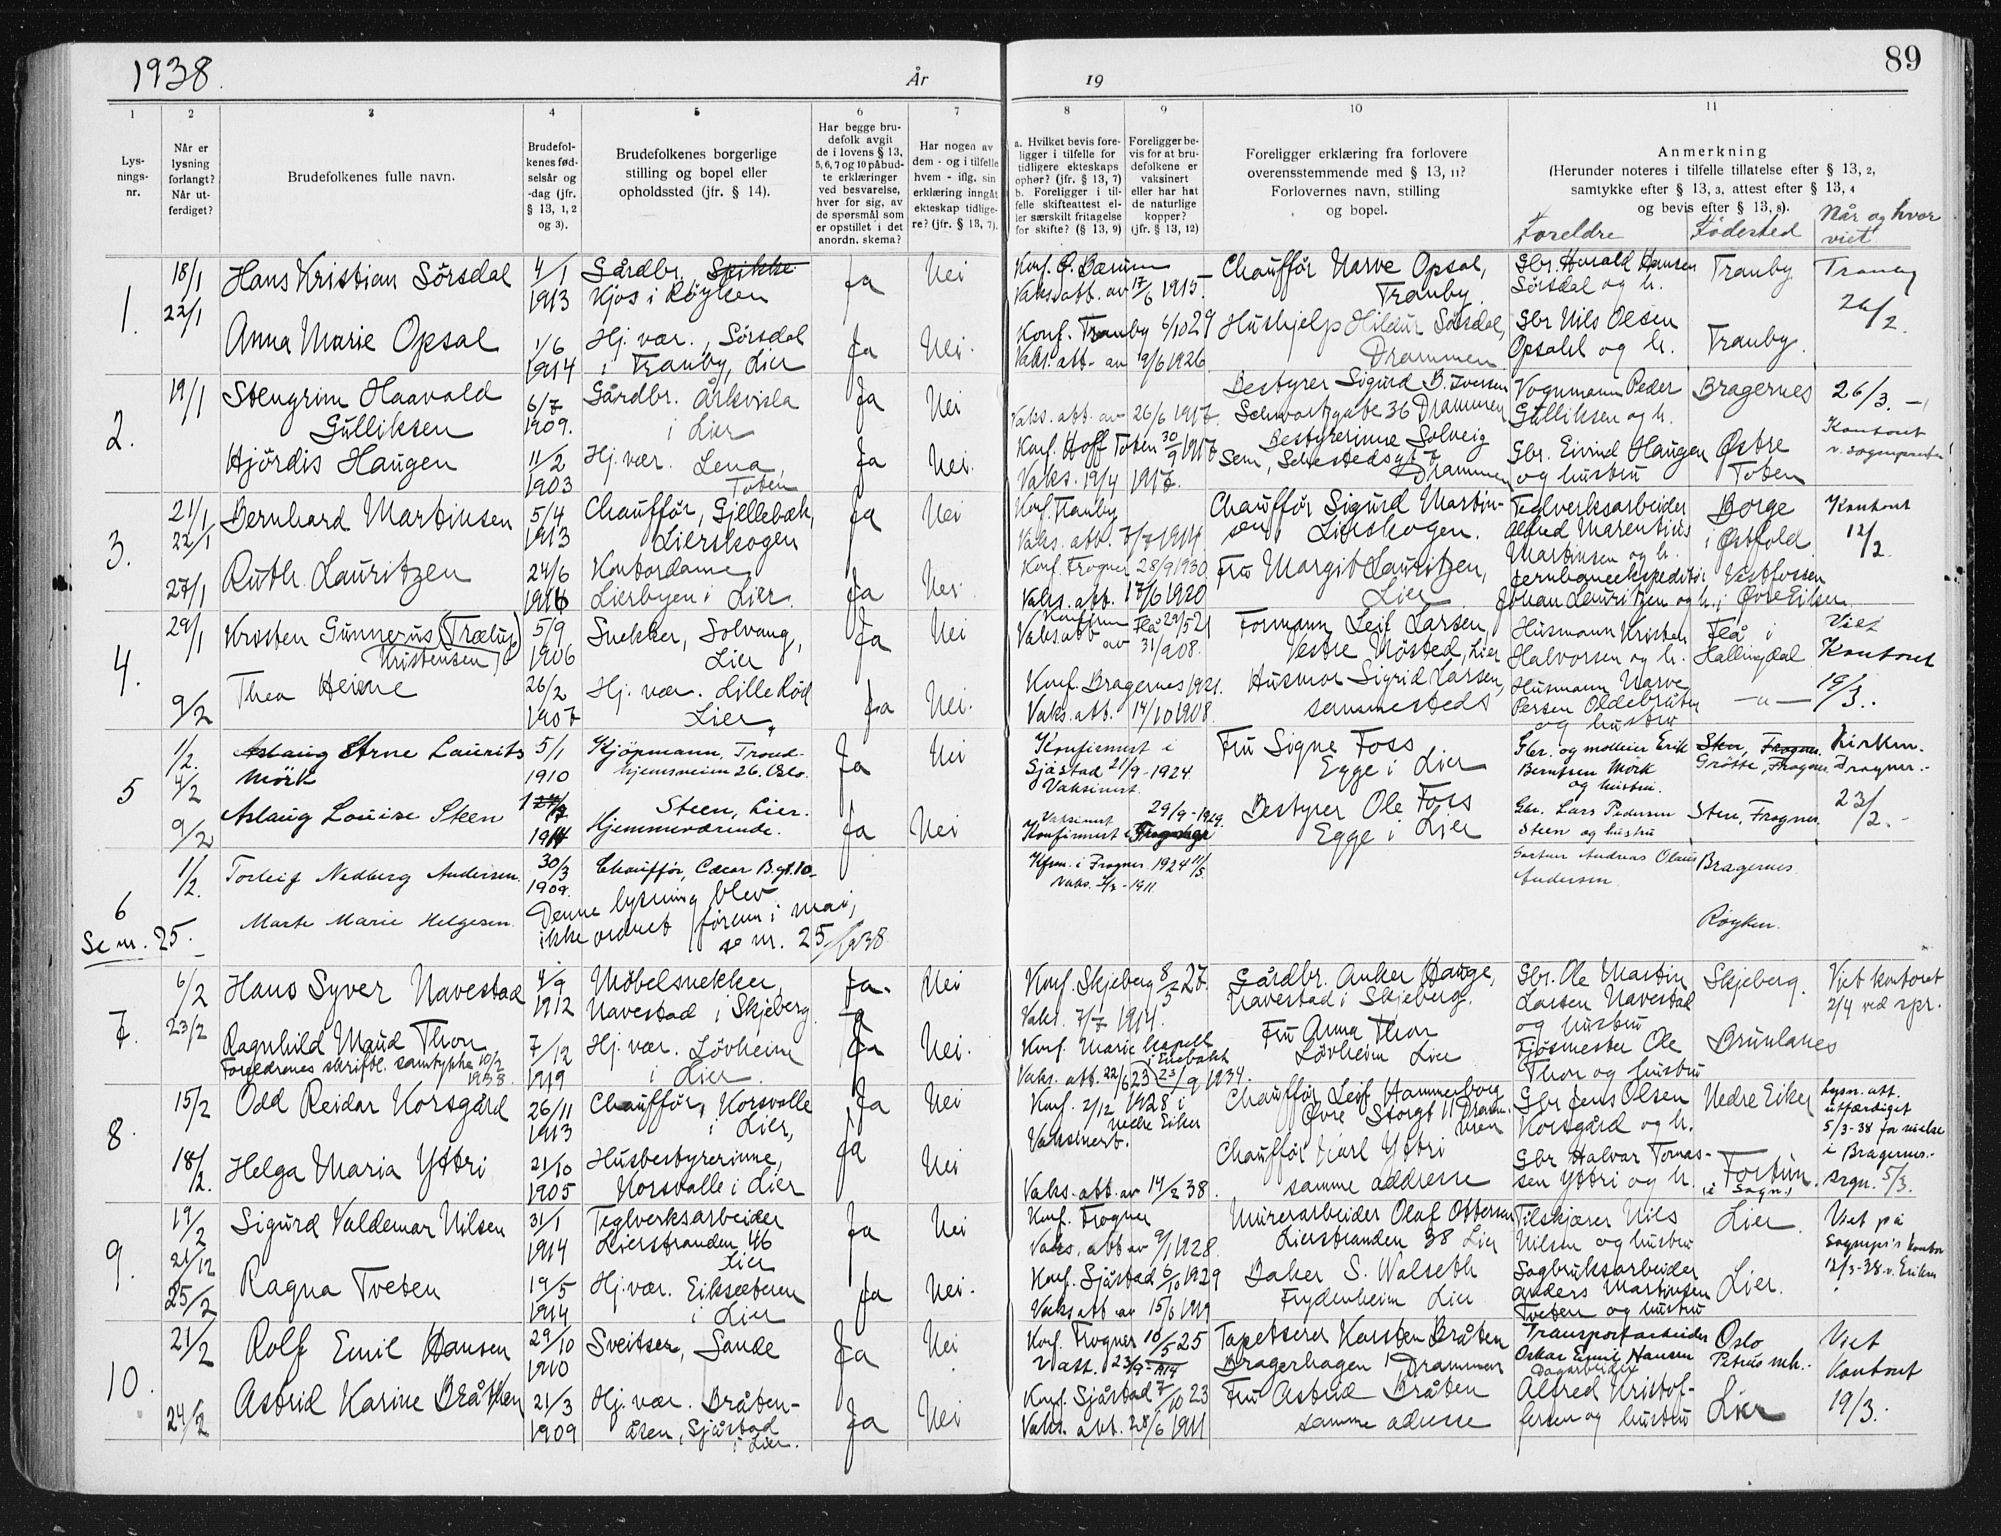 1938.
År
19
89
1 2 3 4 5 6 7 8 9 10 11
Lys-
nings-
nr.
Når er
lysning
forlangt?
Når ut-
ferdiget?
Brudefolkenes fulle navn.
Brudefol-
kenes fød-
selsår og
-dag (jfr.
§ 13, 1, 2
og 3).
Brudefolkenes borgerlige
stilling og bopel eller
opholdssted (jfr. § 14).
Har begge bru-
defolk avgit
de i lovens § 13,
5, 6, 7 og 10 påbud-
te erklæringer
ved besvarelse,
hver for sig, av
de spørsmål som
er opstillet i det
anordn. skema?
Har nogen av
dem - og i tilfelle
hvem - iflg. sin
erklæring inngåt
ekteskap tidlige-
re? (jfr. § 13, 7).
a. Hvilket bevis fore-
ligger i tilfelle for
tidligere ekteskaps
ophør? (jfr. § 13, 7)
b. Foreligger i til-
felle skifteattest el-
ler særskilt fritagelse
for skifte? (§ 13, 9)
Foreligger be-
vis for at bru-
defolkene er
vaksinert
eller har hat
de naturlige
kopper?
(jfr. § 13, 12)
Foreligger erklæring fra forlovere
overensstemmende med § 13, 11?
Forlovernes navn, stilling
og bopel.
Anmerkning
(Herunder noteres i tilfelle tillatelse efter § 13, 2,
samtykke efter § 13, 3, attest efter § 13, 4
og bevis efter § 13, 8).
Foreldre
Fødested
Når og hvor
viet
1.
18/1
22/1
Hans Kristian Sørsdal
4/1
1913
Gårdbr. Spikke
Kjos i Røyken
Ja
Nei
Konf. Ø. Bærum
Vaks. att. av 17/6 1915.
Chauffør Narve Opsal,
Tranby.
Gbr. Harald Hansen
Sørsdal og h.
Tranby
Tranby
26/2.
Anna Marie Opsal
1/6
1914
Hj. vær., Sørsdal
i Tranby, Lier
Ja
Nei.
Konf. Tranby 6/10 29
Vaks. att. av 9/6 1926
Hushjelp Hildur Sørsdal,
Drammen
Gbr Nils Olsen
Opsahl og h.
Tranby.
2.
19/1
Stengrim Haavald
Gulliksen
6/7
1909.
Gårdbr.
i Lier
Ja
Nei
Vaks. att. av 26/6 1917
Bestyrer Sigurd B. Iversen
Schwartzgate 36 Drammen
Vognmann Peder
Gulliksen og h.
Bragernes
26/3.
Kontoret
v. sogneprest
Hjørdis Haugen
11/2
1903
Hj. vær. Lena,
Toten
Ja
Nei.
Konf. Hoff Toten 30/9 1917
Vaks. 19/4 1917.
Bestyrerinne Solveig
Sem, Schestedsgt 7
Drammen
Gbr. Eivind Haugen
og hustru
Østre
Toten
3.
21/1
22/1
Bernhard Martinsen
5/4
1913
Chauffør, Gjellebæk,
Lierskogen
Ja
Nei
Konf. Tranby
Vaks. att. 7/7 1914
Chauffør Sigurd Martin-
sen, Lierskogen.
Teglverksarbeider
Alfred Marentius
Martinsen og h.
Borge
i Østfold
Kontoret
12/2.
27/1
Ruth Lauritzen
24/6
1916
Kontordame
Lierbyen i Lier.
Ja
Nei
Konf. Frogner 28/9 1930
Vaks. att. 17/6 1920
Fru Margit Lauritzen,
Lier
Jernbaneekspeditør
Johan Lauritzen og h.
Vestfossen
i Øvre Eiker
4.
29/1
Kristen Gunnerus (Trælus)
Kristensen
5/9
1906
Snekker, Solvang,
Lier
Ja
Nei
Konfirm. Flå 29/5 21
Vaks att av 31/9 08.
Formann Leif Larsen,
Vestre Møsted, Lier
Husmann Kristen
Halvorsen og h.
Flå i
Hallingdal
Viet
Kontoret
19/3.
9/2
Thea Heiene
26/2
1907
Hj. vær. Lille Rød
Lier
Ja
Nei.
Konf. Bragernes 1921.
Vaks. att. 14/10 1908
Husmor Sigrid Larsen,
sammesteds
Husmann Narve
Persen Oldebråten
og hustru
— " —
5
1/2.
4/2
Aslaug Arne Laurits
Mörk
5/1
1910
Kjøpmann, Trond-
hjemsveien 26. Oslo.
Ja
Nei
Konfirmert i
Sjåstad 21/9 - 1924
Vaksinert.
Fru Signe Foss
Egge i Lier
Gbr. og møller Erik
Berntsen Mörk
og hustru.
Sten, Frogner.
Grøtte, Frogner.
Kirken.
Frogner.
23/2.
9/2
Aslaug Louise Steen
1914
Steen, Lier.
Hjemmeværende.
Ja
Nei
Vaksinert 29/9 - 1929.
Konfirmert i Frogner
Bestyrer Ole Foss
Egge i Lier
Gbr. Lars Pedersen
Steen og hustru
Sten, Frogner.
6
Se nr. 25.
1/2.
Torleif Nedberg Andersen
30/3
1909.
Chauffør, Cæcar B.gt. 10
Kfm. i Frogner 1924 11/5
Vaks. - 1911
Gartner Andreas Olaus
Andersen.
Bragernes
Marte Marie Helgesen
Denne lysning blev
ikke ordnet førenn i mai,
se nr. 25/1938
Røyken.
7.
6/2
Hans Syver Navestad
4/9
1912
Møbelsnekker,
Navestad i Skjeberg.
Ja.
Nei
Konf. Skjeberg 8/5 - 27
Vaks. 7/7 1914.
Gårdbr. Anker Hauge,
Navestad i Skjeberg.
Gbr. Ole Martin
Larsen Navestad
og hustru
Skjeberg.
Viet kontoret
2/4 ved spr.
23/2
Ragnhild Maud Thon
Foreldrenes skriftl. samtykke 10/2
1938.
7/12
1919
Hj. vær. Løvheim
i Lier.
Ja
Nei.
Konf. Marie kapell
i Enebakk
Vaks. att. 22/6 23 (23/9 1934.
Fru Anna Thon
Løvheim Lier
Fjøsmester Ole
Thon og hustru
Brunlanes
8.
15/2
Odd Reidar Korsgård
26/11
1913
Chauffør, Korsvalle
i Lier,
Ja
Nei
Konf. 2/12 1928 i
nedre Eiker
Vaksinert.
Chauffør Leif Hammerborg
Øvre Storgt 11 Dram-
men
Gbr Jens Olsen
Korsgård og h.
Nedre Eiker
Lysn. att.
utferdiget
5/3-38 for vielse
i Bragernes.
sogn. 5/3.
18/2.
Helga Maria Yttri
21/10
1905
Husbestyrerinne,
Korsvalle i Lier
Ja
Nei
Vaks. att. av 14/2 38.
Chauffør Karl Yttri
samme addresse
Gbr Halvar Tomas-
sen Yttri og h.
Fortun.
(i Sogn)
9.
19/2
21/12
Sigurd Valdemar Nilsen
31/1
1914
Teglverksarbeider
Lierstranden 46
Lier
Ja
Nei
Konf. Frogner
Vaks. att av 9/1 1928.
Murerarbeider Olaf Ottersen
Lierstranden 38 Lier
Tilskjærer Nils
Nilsen og hustru
Lier.
Viet på
Sognepr's kontor
12/3-38 v. Eriksen
25/2
Ragna Tveten
19/5
1914
Hj. vær. Eiksæteren
i Lier
Ja
Nei.
Konf. Sjåstad 6/10 1929
Vaks att av 15/6 1919
Baker S. Walseth
Frydenheim Lier
Sagbruksarbeider
Anders Martinsen
Tveten og hustru
Lier.
10.
21/2
Rolf Emil Hansen
29/10
1910
Sveitser, Sande
Ja
Nei
Konf. Frogner 10/5 25
V att. 23/9 - 1914
Tapetserer Karsten Bråten
Bragerhagen 1 Drammen
Transportarbeider
Oskar Emil Hansen
Oslo
Petrus mh.
Viet
Kontoret
19/3.
24/2
Astrid Karine Bråthen
21/3
1909
Hj. vær. Bråten-
åsen, Sjåstad
i Lier.
Ja
Nei
Konf. Sjåstad 7/10 23
Vaks. att. 28/6 1911
Fru Astrid Bråten
samme adresse
Dagarbeider
Alfred Kristof-
fersen og hustru
Lier